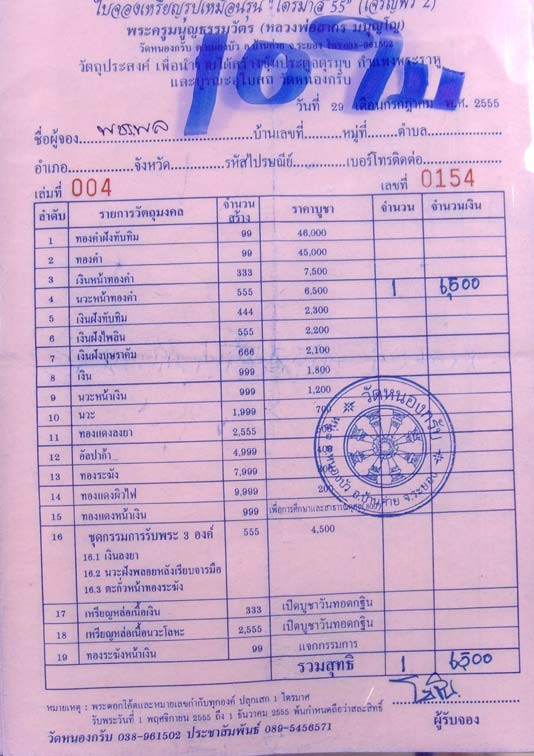 ใบจองเหรียญรูปเหมือนรุ่น "ไตรมาส 55" (เจริญพร 2)
(หลวงพ่อสาคร มนุญโญ)
วัดหนองกรับ ต.หนองบัว อ.บ้านค่าย จ.ระยอง โทร 038-961502
วัตถุประสงค์ เพื่อนำรายได้สร้างซุ้มประตูจตุรมุข กำแพงพระราหู
และบูรณะอุโบสถ วัดหนองกรับ
วันที่ 29 เดือนกรกฎาคม พ.ศ. 2555
ชื่อผู้จอง พชรพล บ้านเลขที่ หมู่ที่ ตำบล
อำเภอ จังหวัด รหัสไปรษณีย์ เบอร์โทรติดต่อ
เล่มที่ 004 เลขที่ 0154
ลำดับ รายการวัตถุมงคล จำนวนสร้าง ราคาบูชา จำนวน จำนวนเงิน
1 ทองคำฝังทับทิม 99 46,000
2 ทองคำ 99 45,000
3 เงินหน้าทองคำ 333 7,500
4 นวะหน้าทองคำ 555 6,500 1 6,500
5 เงินฝังทับทิม 444 2,300
6 เงินฝังไพลิน 555 2,200
7 เงินฝังบุษราคัม 666 2,100
8 เงิน 999 1,800
9 นวะหน้าเงิน 999 1,200
10 นวะ 1,999 700
11 ทองแดงลงยา 2,555
12 อัลปาก้า 4,999
13 ทองระฆัง 7,999
14 ทองแดงผิวไฟ 9,999 200
15 ทองแดงหน้าเงิน 999 เพื่อการศึกษาและสาธารณกุศล
16 ชุดกรรมการรับพระ 3 องค์ 555 4,500
16.1 เงินลงยา
16.2 นวะฝังพลอยหลังเรียบจารมือ
16.3 ตะกั่วหน้าทองระฆัง
17 เหรียญหล่อเนื้อเงิน 333 เปิดบูชาวันทอดกฐิน
18 เหรียญหล่อเนื้อนวะโลหะ 2,555 เปิดบูชาวันทอดกฐิน
19 ทองระฆังหน้าเงิน 99 แจกกรรมการ
รวมสุทธิ 1 6,500
วัดหนองกรับ
ต.หนองบัว อ.บ้านค่าย จ.ระยอง
หมายเหตุ : พระตอกโค้ดและหมายเลขกำกับทุกองค์ ปลุกเสก 1 ไตรมาศ
รับพระวันที่ 1 พฤศจิกายน 2555 ถึง 1 ธันวาคม 2555 พ้นกำหนดถือว่าสละสิทธิ์
ผู้รับจอง
วัดหนองกรับ 038-961502 ประชาสัมพันธ์ 089-5456571